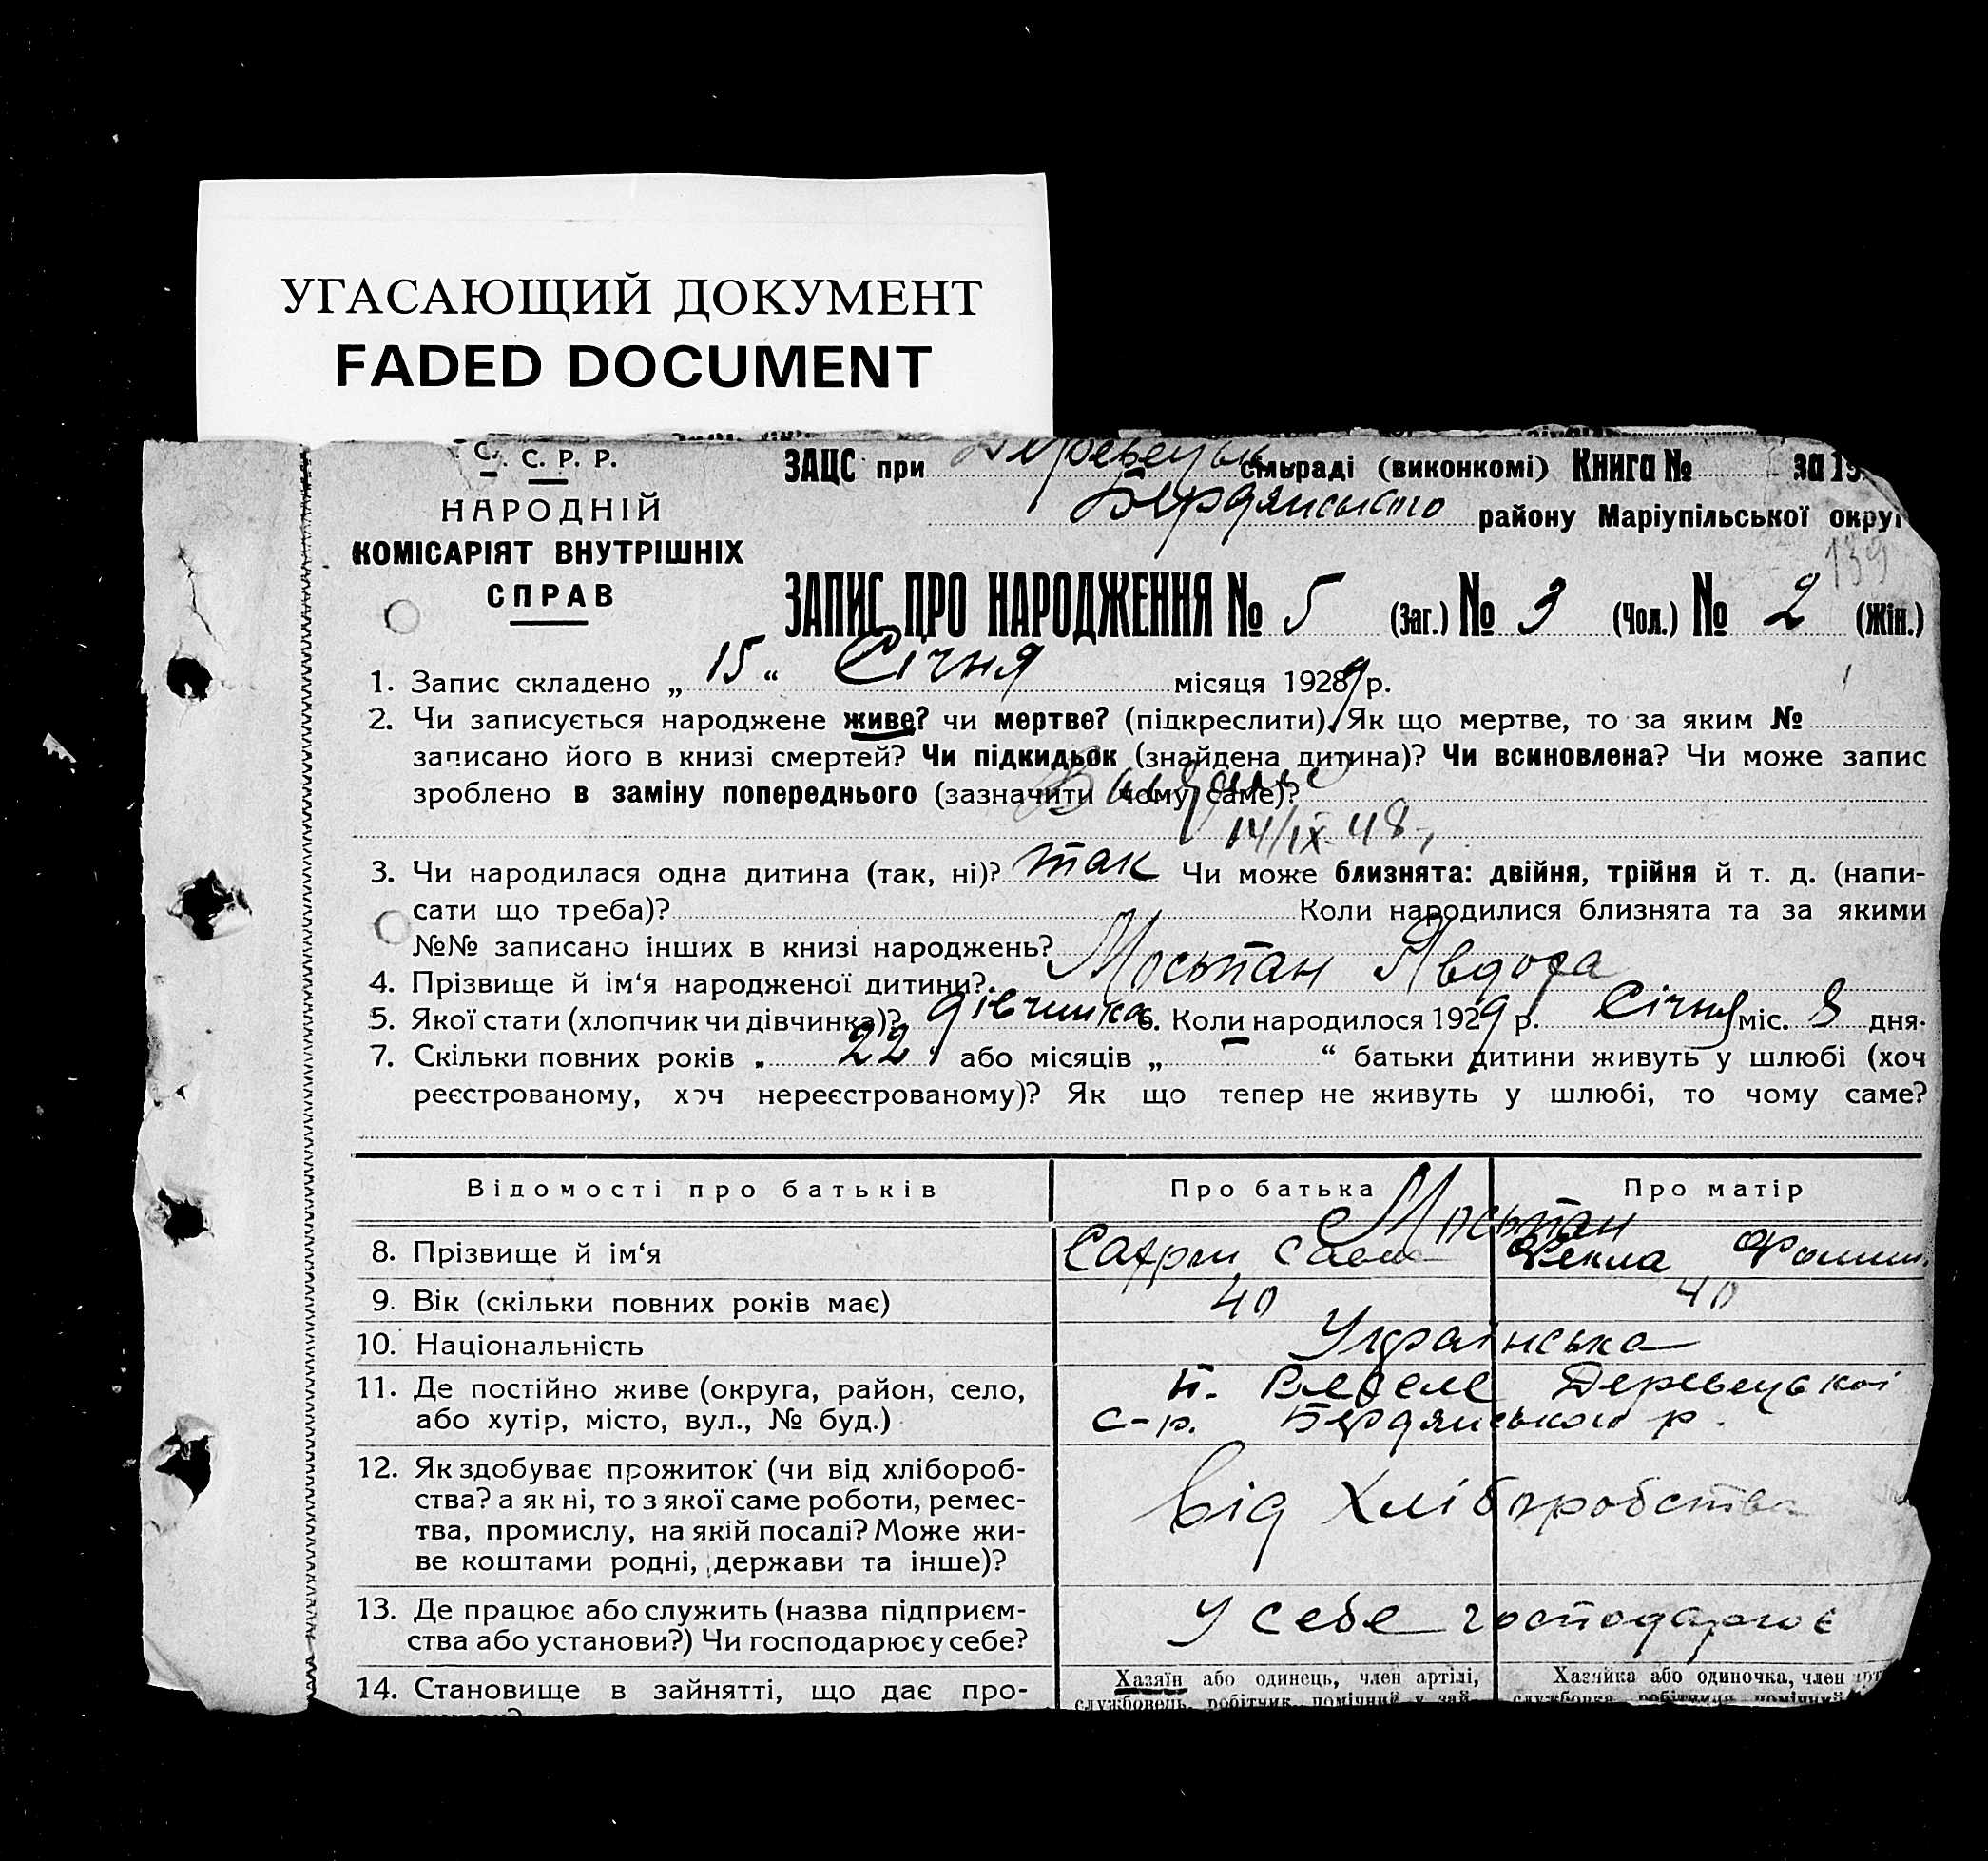 УГАСАЮЩИЙ ДОКУМЕНТ
FADED DOCUMENT
С. С. Р. Р.
НАРОДНІЙ
КОМІСАРІЯТ ВНУТРІШНІХ
СПРАВ
ЗАЦС при сільраді (виконкомі) Книга № за 19
Бердянського району Маріупільської округ
139
ЗАПИС ПРО НАРОДЖЕННЯ № 5 (Заг.) № 3 (Чол.) № 2 (Жін.)
1. Запис складено „ 15 “ Січня місяця 19289 р.
2. Чи записується народжене живе? чи мертве? (підкреслити). Як що мертве, то за яким №
записано його в книзі смертей? Чи підкидьок (знайдена дитина)? Чи всиновлена? Чи може запис
зроблено в заміну попереднього (зазначити чому саме)?
14/IX 48
3. Чи народилася одна дитина (так, ні)? так Чи може близнята: двійня, трійня й т. д. (напи-
сати що треба)? Коли народилися близнята та за якими
№№ записано інших в книзі народжень?
4. Прізвище й ім‘я народженої дитини? Моськпан Явдоха
5. Якої стати (хлопчик чи дівчинка)? дівчинка 6. Коли народилося 1929 р. Січня міс. 8 дня.
7. Скільки повних років „ 22 “ або місяців „ – “ батьки дитини живуть у шлюбі (хоч
реєстрованому, хоч нереєстрованому)? Як що тепер не живуть у шлюбі, то чому саме?
Відомості про батьків Про батька Про матір
8. Прізвище й ім‘я Текла
9. Вік (скільки повних років має) 40 40
10. Національність Українська
11. Де постійно живе (округа, район, село, Веселе Деревецької
або хутір, місто, вул., № буд.) с-р. Бердянського р.
12. Як здобуває прожиток (чи від хлібороб-
ства? а як ні, то з якої саме роботи, ремес- Від Хліборобства
тва, промислу, на якій посаді? Може жи-
ве коштами родні, держави та інше)?
13. Де працює або служить (назва підприєм- У себе господарює
ства або установи?) Чи господарює у себе?
14. Становище в зайнятті, що дає про- Хазяїн або одинець, член артілі, Хазяйка або одиночка, член арт
службовець, робітник, помічний у зай- службовка, робітниця помічний